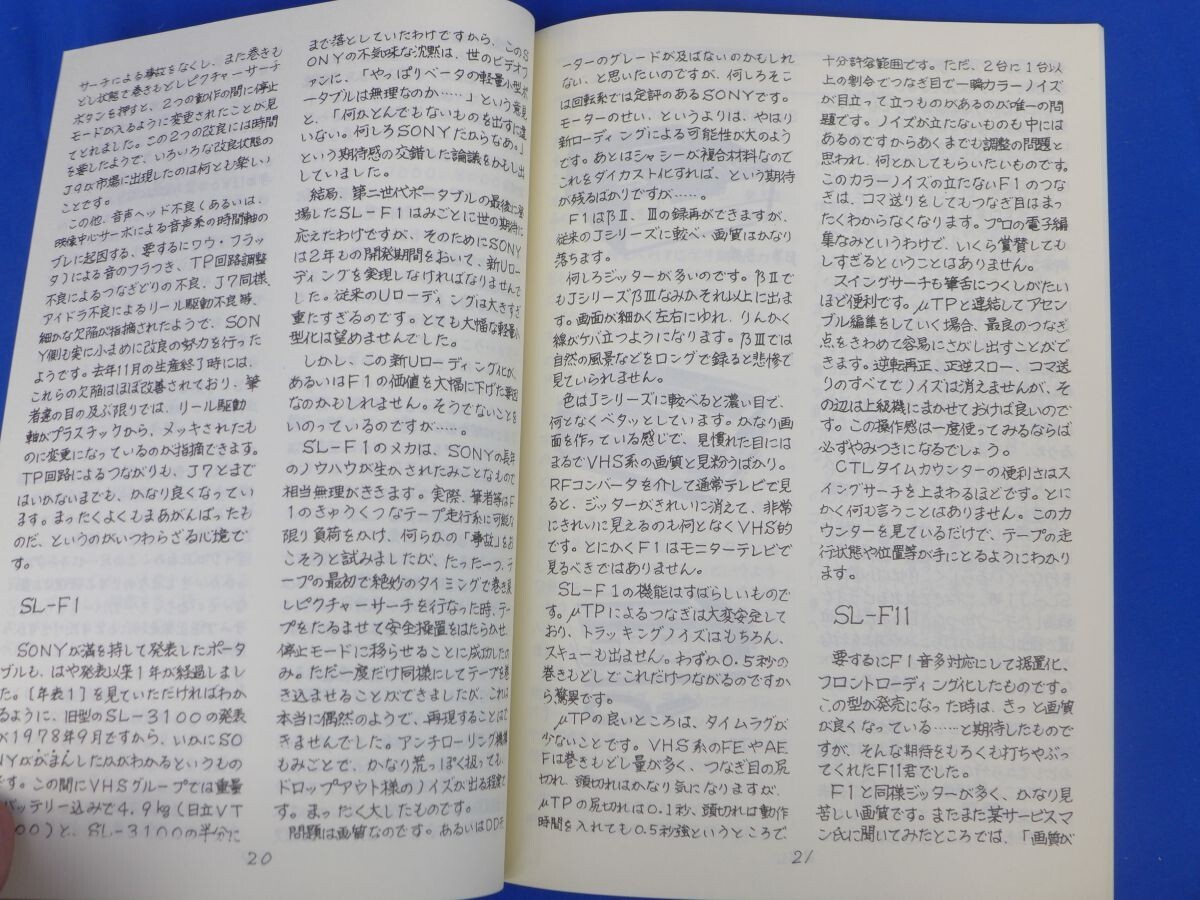 サーチによる事故をなくし、また巻きも
どし状態で巻きもどしピクチャーサーチ
ボタンを押すと、2つの動作の間に停止
モードが入るように変更されたことが見
てとれました。この2つの改良には時間
を要したようで、いろいろな改良状態の
J9が市場に出現したのは何とも楽しい
ことです。
この他、音声ヘッド不良(あるいは、
映像中心サーボによる音声系の時間軸の
ブレに起因する、要するにワウ・フラッ
タ)による音のフラつき、TP回路調整
不良によるつなぎどりの不良、J7同様、
アイドラ不良によるリール駆動不良等、
細かな欠陥が指摘されたようで、SON
Y側も実に小まめに改良の努力を行った
ようです。去年11月の生産終了時には、
これらの欠陥はほぼ改善されており、筆
者達の目の及ぶ限りでは、リール駆動
軸がプラスチックから、メッキされたも
のに変更になっているのが指摘できます。
TP回路によるつながりも、J7とまで
はいかないまでも、かなり良くなってい
ます。まったくよくもまあがんばったも
のだ、というのがいつわらざる心境で
す。
SL-F1
SONYが満を持して発表したポータ
ブルも、はや発表以来1年が経過しまし
た。[年表1]を見ていただければわか
るように、旧型のSL-3100の発表
が1978年9月ですから、いかにSO
NYががまんしたかがわかるというもの
です。この間にVHSグループでは重量
バッテリー込みで4.9kg(日立VT
00)と、SL-3100の半分に
20
まで落としていたわけですから、このS
ONYの不気味な沈黙は、世のビデオフ
ァンに、「やっぱりベータの軽量小型ポ
ータブルは無理なのか……」という意見
と、「何かとんでもないものを出すに違
いない。何しろSONYだからなあ。」
という期待感の交錯した論議をかもし出
していました。
結局、第二世代ポータブルの最後に登
場したSL-F1はみごとに世の期待に
応えたわけですが、そのためにSONY
は2年もの開発期間をおいて、新Uロー
ディングを実現しなければなりませんで
した。従来のUローディングは大きすぎ
重たすぎるのです。とても大幅な軽量小
型化は望めませんでした。
しかし、この新Uローディング化が、
あるいはF1の価値を大幅に下げた要因
なのかもしれません。そうでないことを
いのっているのですが……。
SL-F1のメカは、SONYの長年
のノウハウが生かされたみごとなもので
相当無理がききます。実際、筆者等はF
1のきゅうくつなテープ走行系に可能な
限り負荷をかけ、何らかの「事故」をお
こそうと試みましたが、たった一つ、テ
ープの最初で絶妙のタイミングで巻き戻
しピクチャーサーチを行なった時、テー
プをたるませて安全操置をはたらかせ、
停止モードに移らせることに成功したの
み。ただ一度だけ同様にしてテープを巻
き込ませることができましたが、これは
本当に偶然のようで、再現することはで
きませんでした。アンチローリング機構
もみごとで、かなり荒っぽく扱っても、
ドロップアウト様のノイズが出る程度で
す。まったく大したものです。
問題は画質なのです。あるいはDDモ
ーターのグレードが及ばないのかもしれ
ない、と思いたいのですが、何しろそこ
は回転系では定評のあるSONYです。
モーターのせい、というよりは、やはり
新ローディングによる可能性が大のよう
です。あとはシャシーが複合材料なので
これをダイカスト化すれば、という期待
が残るばかりですが……。
F1はβⅡ、Ⅲの録再ができますが、
従来のJシリーズに較べ、画質はかなり
落ちます。
何しろジッターが多いのです。βⅡで
もJシリーズβⅢなみかそれ以上に出ま
す。画面が細かく左右にゆれ、りんかく
線がケバ立つようになります。βⅢでは
自然の風景などをロングで録ると悲惨で
見ていられません。
色はJシリーズに較べると濃い目で、
何となくベタッとしています。かなり画
面を作っている感じで、見慣れた目には
まるでVHS系の画質と見粉うばかり。
RFコンバータを介して通常テレビで見
ると、ジッターがきれいに消えて、非常
にきれいに見えるのも何となくVHS的
です。とにかくF1はモニターテレビで
見るべきではありません。
SL-F1の機能はすばらしいもので
す。μTPによるつなぎは大変安定して
おり、トラッキングノイズはもちろん、
スキューも出ません。わずか0.5秒の
巻きもどしでこれだけつながるのですか
ら驚異です。
μTPの良いところは、タイムラグが
少ないことです。VHS系のFEやAE
Fは巻きもどし量が多く、つなぎ目の尻
切れ、頭切れはかなり気になりますが、
μTPの尻切れは0.1秒、頭切れは動作
時間を入れても0.5秒強というところで、
21
十分許容範囲です。ただ、2台に1台以
上の割合でつなぎ目で一瞬カラーノイズ
が目立って立つものがあるのが唯一の問
題です。ノイズが立たないものも中には
あるのですからあくまでも調整の問題と
思われ、何とかしてもらいたいものです。
このカラーノイズの立たないF1のつな
ぎは、コマ送りをしてもつなぎ目はまっ
たくわからなくなります。プロの電子編
集なみというわけで、いくら賞賛しても
しすぎるということはありません。
スイングサーチも筆舌につくしがたい
ほど便利です。μTPと連結してアセン
ブル編集をしていく場合、最良のつなぎ
点をきわめて容易にさがし出すことがで
きます。逆転再正、正逆スロー、コマ送
りのすべてでノイズは消えませんが、そ
の辺は上級機にまかせておけば良いので
す。この操作感は一度使ってみるならば
必ずやみつきになるでしょう。
CTLタイムカウンターの便利さはス
イングサーチを上まわるほどです。とに
かく何も言うことはありません。このカ
ウンターを見ているだけで、テープの走
行状態や位置等が手にとるようにわかり
ます。
SL-F11
要するにF1音多対応にして据置化、
フロントローディング化したものです。
この型が発売になった時は、きっと画質
が良くなっている……と期待したもので
すが、そんな期待をもろくも打ちやぶっ
てくれたF11君でした。
F1と同様ジッターが多く、かなり見
苦しい画質です。またまた某サービスマ
ン氏に聞いてみたところでは、「画質が